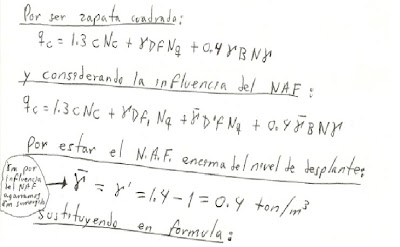 Por ser zapata cuadrada:
qc = 1.3 cNc + γDfNq + 0.4 γBNγ
y considerando la influencia del NAF:
qc = 1.3 cNc + γDf₁ Nq + γ̄D'fNq + 0.4 γ̄BNγ
Por estar el N.A.F. encima del nivel de desplante:
γm por
influencia
del NAF
agarramos
γm sumergido
→ γ̄ = γ' = 1.4 - 1 = 0.4 ton/m³
Sustituyendo en formula: